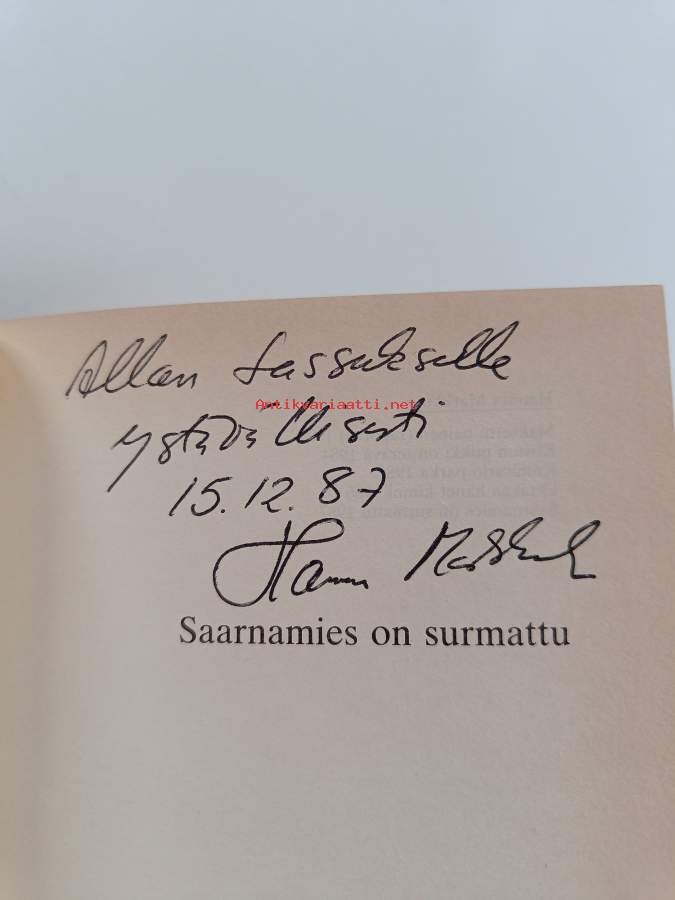 Allan Sassukselle
Antikvariaatti.net
ystävällisesti
15.12.87
Hannu
Saarnamies on surmattu